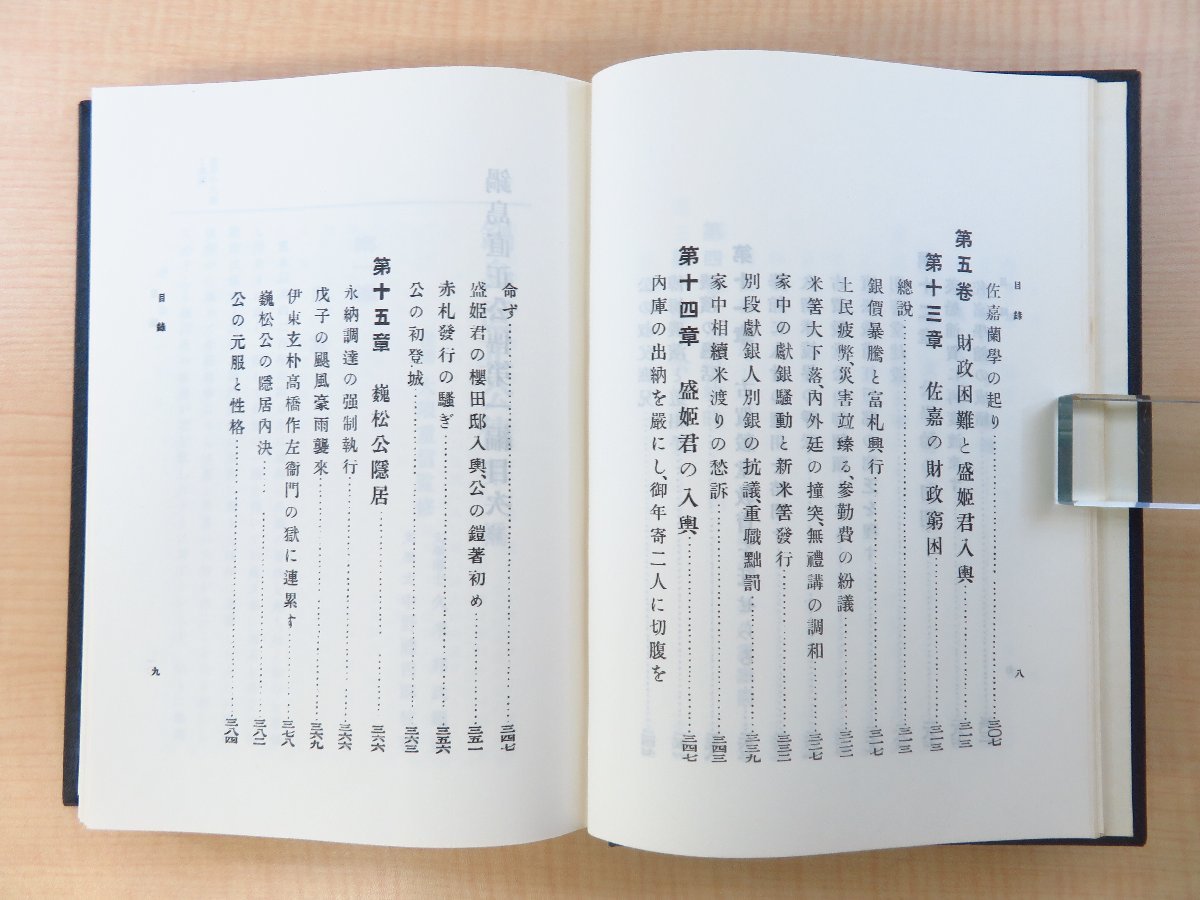 目錄
佐嘉蘭學の起り……………三〇七
第五卷 財政困難と盛姬君入輿……………三一三
第十三章 佐嘉の財政窮困……………三一三
總說……………三一三
銀價暴騰と富札興行……………三一七
土民疲弊災害竝臻る、參勤費の紛議……………三二三
米筈大下落、內外廷の撞突、無禮講の調和……………三二七
家中の獻銀騷動と新米筈發行……………三三三
別段獻銀人別銀の抗議、重職黜罰……………三三九
家中相續米渡りの愁訴……………三四三
第十四章 盛姬君の入輿……………三四七
內庫の出納を嚴にし、御年寄二人に切腹を
八
命ず……………三四七
盛姬君の櫻田邸入輿、公の鎧著初め……………三五一
赤札發行の騷ぎ……………三五六
公の初登城……………三六三
第十五章 巍松公隱居……………三六六
永納調達の强制執行……………三六六
戊子の颶風豪雨襲來……………三六九
伊東玄朴高橋作左衞門の獄に連累す……………三七八
巍松公の隱居內決……………三八二
公の元服と性格……………三八四
目錄
九